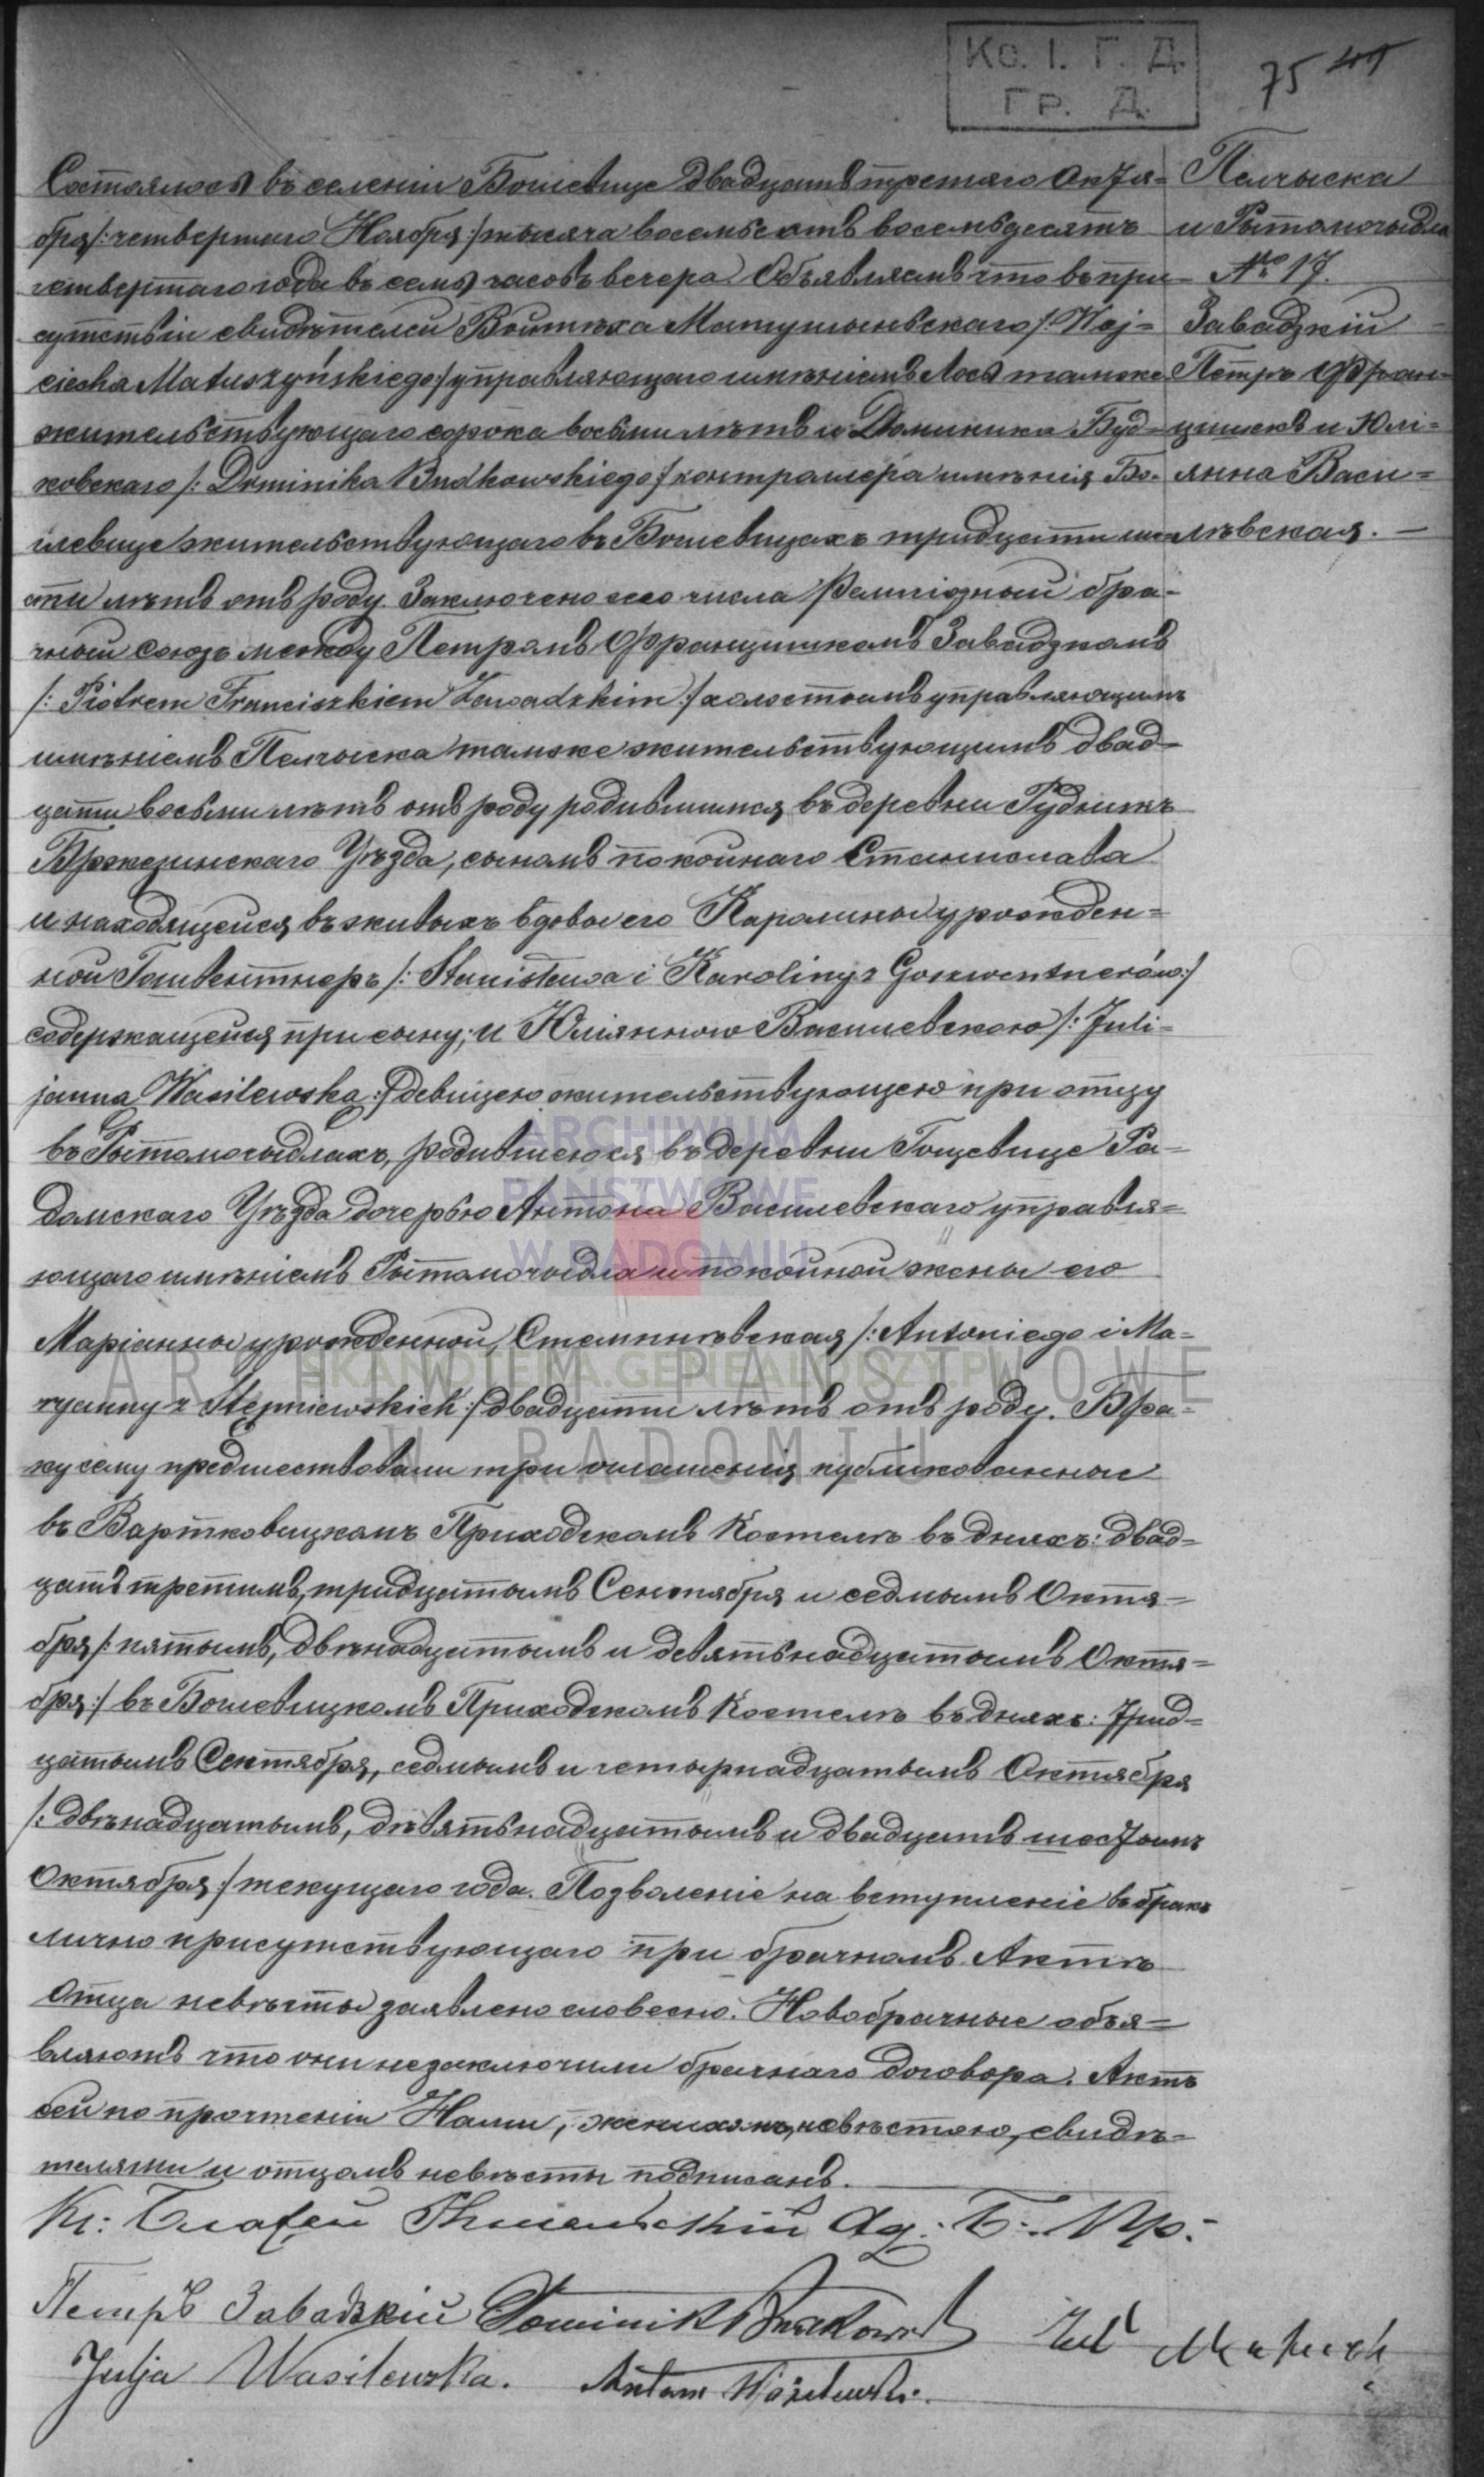 Кс. I. Г. Д.
Гр. Д.
75
Пелчыска
и Рытомочыдла
№ 17.
Завадзкій
Петръ Фран-
цишекъ и Юлі-
янна Васи-
лѣвская. —
Состоялось въ селеніи Болевице двадцать третяго Октя-
бря /: четвертаго Ноября :/ тысяча восемьсотъ восемьдесятъ
четвертаго года въ семь часовъ вечера. Объявляемъ что въ при-
сутствіи свидѣтелей Войтѣха Матушынскаго /: Woj-
ciecha Matuszyńskiego :/ управляющаго имѣніемъ тамже
жительствующаго сорока восьми лѣтъ и Доминика Буд-
ковскаго /: Dominika Budkowskiego :/ контролера имѣнія Бо-
левице жительствующаго въ Болевицахъ тридцати ше-
сти лѣтъ отъ роду. Заключено сего числа религіозный бра-
чный союзъ между Петромъ Францишкомъ Завадзкимъ
/: Piotrem Franciszkiem Zawadzkim :/ холостымъ управляющимъ
имѣніемъ Пелчыска тамже жительствующимъ двад-
цати восьми лѣтъ отъ роду родившимся въ деревни Рудникъ
Бржезинскаго Уѣзда, сыномъ покойнаго Станислава
и находящейся въ живыхъ вдовы его Каролины урожден-
ной Гошвентнеръ /: Stanisława i Karoliny z Goszwentnerów :/
содержащейся при сыну; и Юліянною Василевскою /: Juli-
janna Wasilewska :/ девицею жительствующею при отцу
въ Рытомочыдлахъ, родившеюся въ деревни Гощевице Ра-
домскаго Уѣзда дочерью Антона Василевскаго управля-
ющаго имѣніемъ Рытомочыдла и покойной жены его
Маріанны урожденной Стемпнѣвская /: Antoniego i Ma-
ryanny z Stępniewskich :/ двадцати лѣтъ отъ роду. Бра-
ку сему предшествовали три оглашенія публикованные
въ Вартковицкомъ Приходскомъ Костелѣ въ дняхъ: двад-
цать третимъ, тридцатымъ Сентября и седмымъ Октя-
бря /: пятымъ, двѣнадцатымъ и девятьнадцатымъ Октя-
бря :/ въ Болевицкомъ Приходскомъ Костелѣ въ дняхъ: Трид-
цатымъ Сентября, седмымъ и четырнадцатымъ Октября
/: двѣнадцатымъ, дѣвятьнадцатымъ и двадцать шестымъ
Октября :/ текущаго года. Позволеніе на вступленіе въ бракъ
лично присутствующаго при брачномъ Актѣ
Отца невѣсты заявлено словесно. Новобрачные объя-
вляютъ что они незаключили брачнаго договора. Актъ
сей по прочтеніи Нами, женихомъ, невѣстою, свидѣ-
телями и отцомъ невѣсты подписанъ.
Петръ Завадзкій Dominik Budkowski
Julja Wasilewska. Antoni Wasilewski.
ARCHIWUM
PAŃSTWOWE
W RADOMIU
SKANOTEKA.GENEALODZY.PL
ARCHIWUM PAŃSTWOWE
W RADOMIU